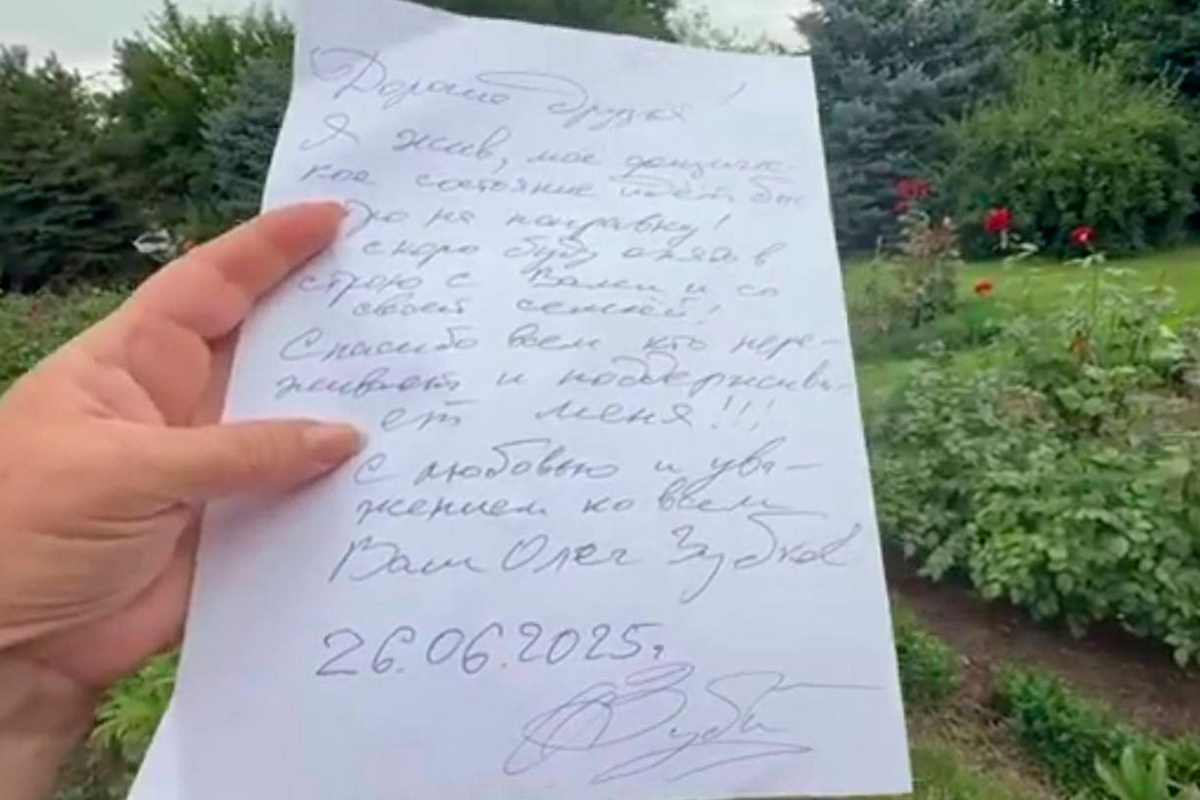 Дорогие друзья!
Я жив, моё физичес-
кое состояние идёт бы
ро на поправку!
скоро буду опять в
строю с Вами и со
своей семьёй!
Спасибо всем кто пере-
живает и поддержива-
ет меня!!!
С любовью и ува-
жением ко всем
Ваш Олег Зубков
26.06.2025г.